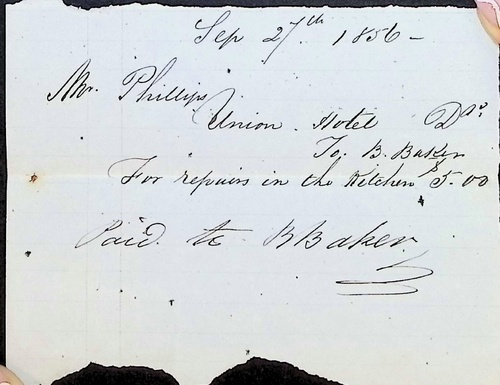 Sep 27th 1856 -
Mr. Phillips
Union Hotel Drs.
To. B. Baker
For repairs in the Kitchen $5.00
Paid. to B Baker.